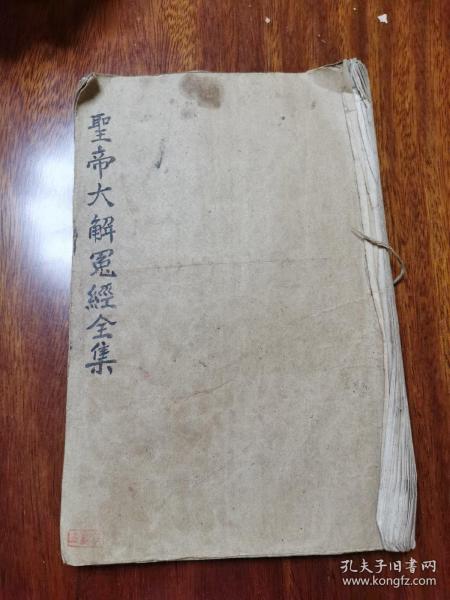 聖帝大解冤經全集
孔夫子旧书网
www.kongfz.com